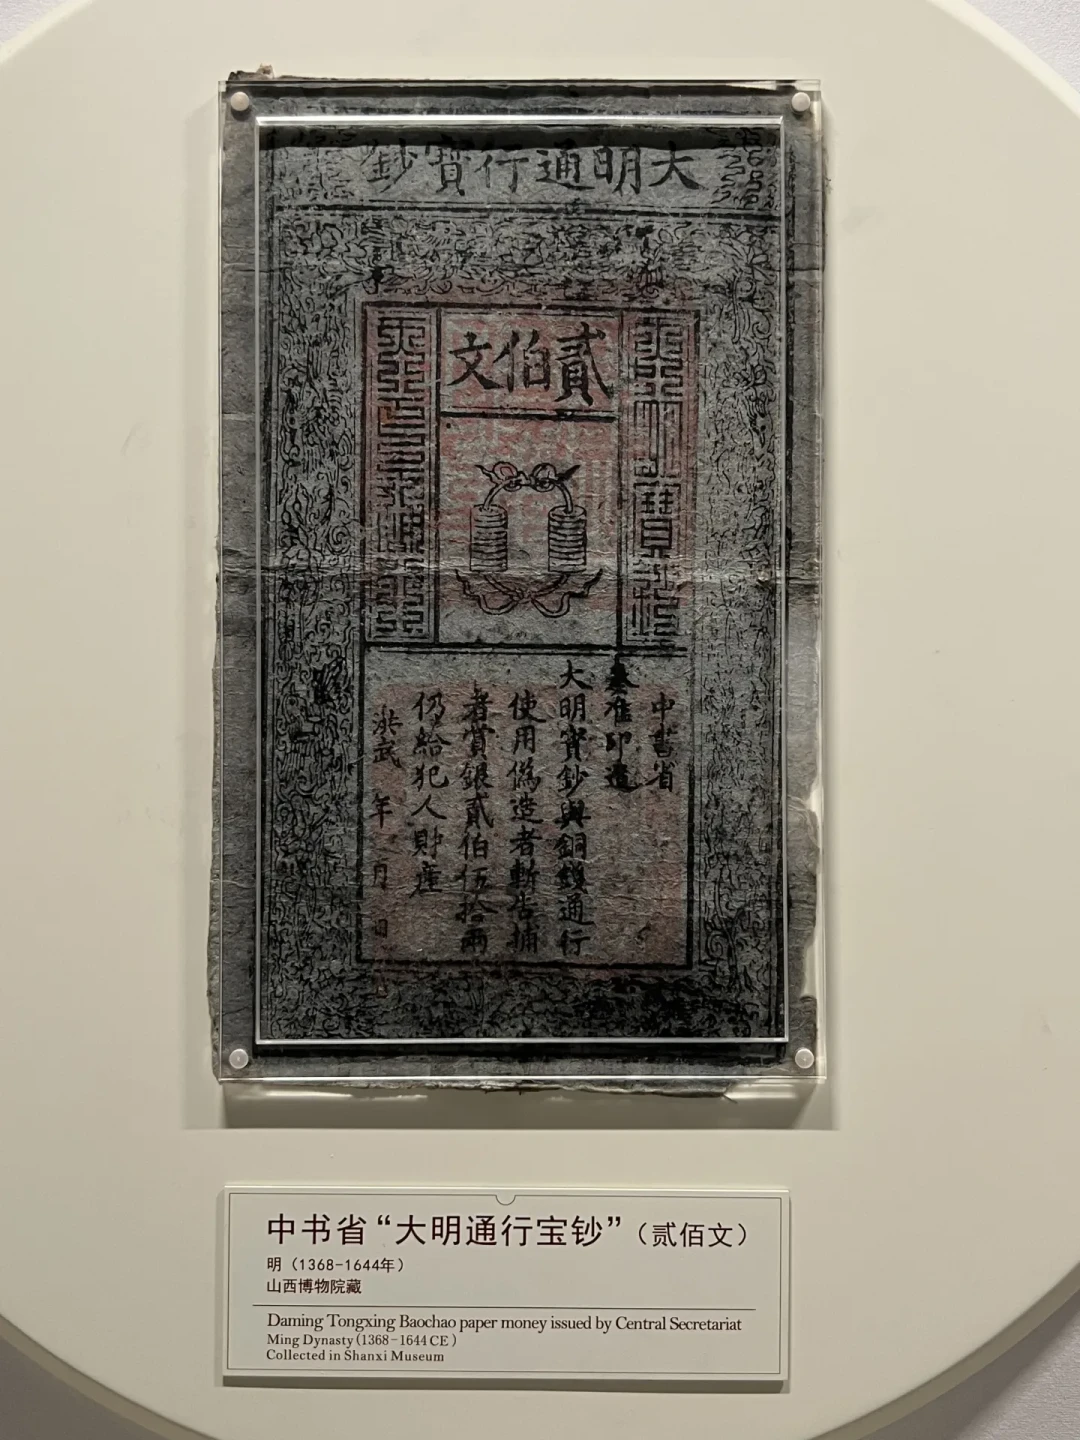 大明通行寶鈔
貳伯文
中書省
奏准印造
大明寶鈔與銅錢通行
使用偽造者斬告捕
者賞銀貳伯伍拾兩
仍給犯人財產
洪武 年 月 日
中书省“大明通行宝钞”（贰佰文）
明（1368-1644年）
山西博物院藏
Daming Tongxing Baochao paper money issued by Central Secretariat
Ming Dynasty (1368-1644 CE)
Collected in Shanxi Museum